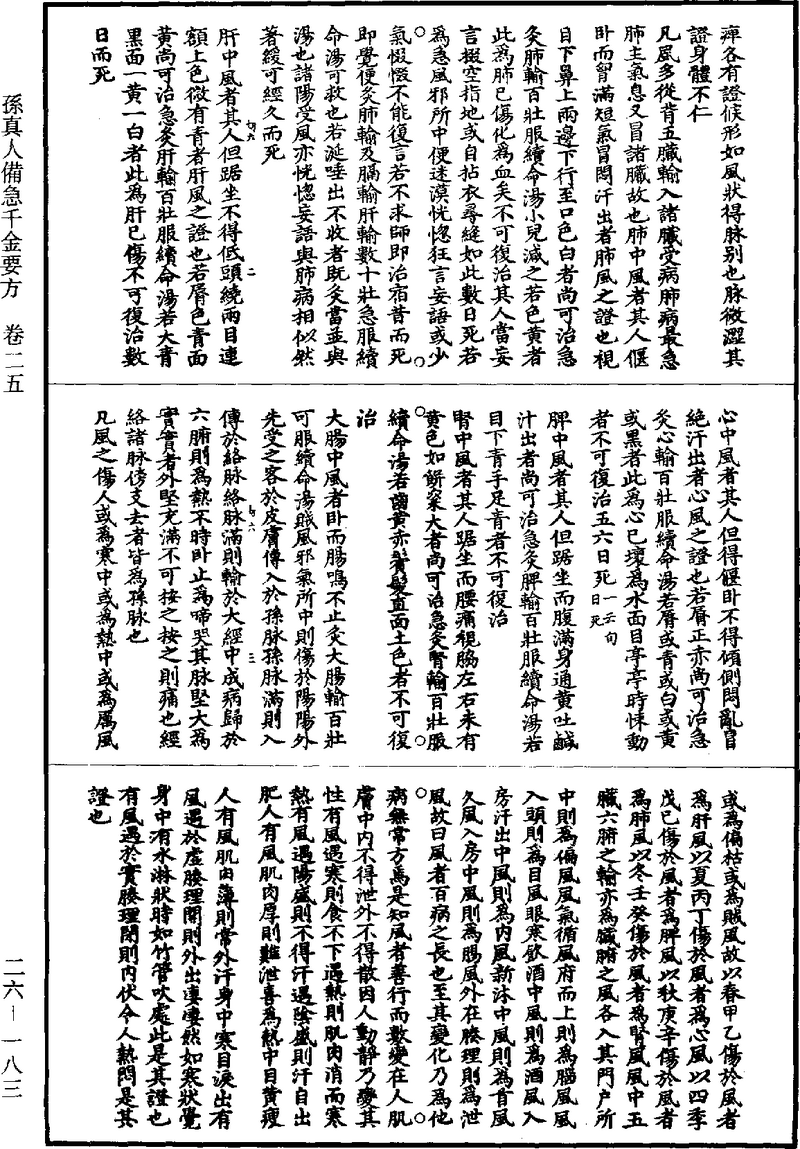 孫真人備急千金要方　卷二五
二六—一八三
痺各有證候形如風狀得脉别也脉微澀其
證身體不仁
凡風多從背五臟輸入諸臟受病肺病最急
肺主氣息又冒諸臟故也肺中風者其人偃
卧而胷滿短氣冒悶汗出者肺風之證也視
目下鼻上兩邊下行至口色白者尚可治急
灸肺輸百壯服續命湯小兒減之若色黄者
此為肺已傷化為血矣不可復治其人當妄
言掇空指地或自拈衣尋縫如此數日死若
為急風邪所中便迷漠恍惚狂言妄語或少
氣惙惙不能復言若不求師即治宿昔而死
即覺便灸肺輸及膈輸肝輸數十壯急服續
命湯可救也若涎唾出不收者既灸當並與
湯也諸陽受風亦恍惚妄語與肺病相似然
著緩可經久而死
肝中風者其人但踞坐不得低頭繞兩目連
額上色微有青者肝風之證也若脣色青面
黄尚可治急灸肝輸百壯服續命湯若大青
黑面一黄一白者此為肝已傷不可復治數
日而死
心中風者其人但得偃卧不得傾側悶亂冒
絶汗出者心風之證也若脣正赤尚可治急
灸心輸百壯服續命湯若脣或青或白或黄
或黑者此為心已壞為水面目亭亭時悚動
者不可復治五六日死一云旬日死
脾中風者其人但踞坐而腹滿身通黄吐鹹
汁出者尚可治急灸脾輸百壯服續命湯若
目下青手足青者不可復治
腎中風者其人踞坐而腰痛視脇左右未有
黄色如餅粢大者尚可治急灸腎輸百壯服
續命湯若齒黄赤鬢髮直面土色者不可復
治
大腸中風者卧而腸鳴不止灸大腸輸百壯
可服續命湯賊風邪氣所中則傷於陽陽外
先受之客於皮膚傳入於孫脉孫脉滿則入
傳於絡脉絡脉滿則輸於大經中成病歸於
六腑則為熱不時卧止為啼哭其脉堅大為
實實者外堅充滿不可按之按之則痛也經
絡諸脉傍支去者皆為孫脉也
凡風之傷人或為寒中或為熱中或為厲風
或為偏枯或為賊風故以春甲乙傷於風者
為肝風以夏丙丁傷於風者為心風以四季
戊己傷於風者為脾風以秋庚辛傷於風者
為肺風以冬壬癸傷於風者為腎風風中五
臟六腑之輸亦為臟腑之風各入其門户所
中則為偏風風氣循風府而上則為腦風風
入頭則為目風眼寒飲酒中風則為酒風入
房汗出中風則為内風新沐中風則為首風
久風入房中風則為腸風外在腠理則為泄
風故曰風者百病之長也至其變化乃為他
病無常方焉是知風者善行而數變在人肌
膚中内不得泄外不得散因人動靜乃變其
性有風遇寒則食不下遇熱則肌肉消而寒
熱有風遇陽盛則不得汗遇陰盛則汗自出
肥人有風肌肉厚則難泄喜為熱中目黄瘦
人有風肌肉薄則常外汗身中寒目淚出有
風遇於虚腠理開則外出凄凄然如寒狀覺
身中有水淋狀時如竹管吹處此是其證也
有風遇於實腠理閉則内伏令人熱悶是其
證也